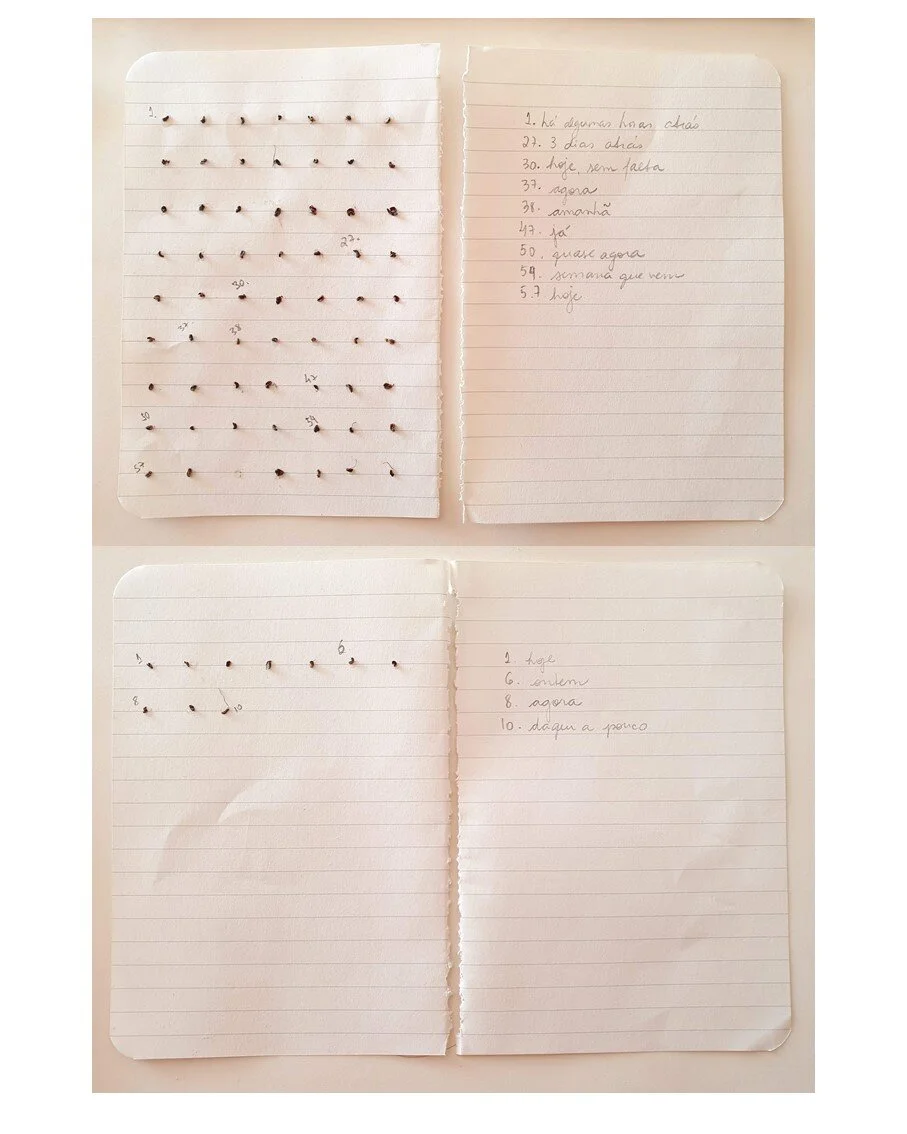 1.
27.
30.
37
38
47
50
54
57
1. há algumas horas atrás
27. 3 dias atrás
30. hoje, sem falta
37. agora
38. amanhã
47. já
50. quase agora
54. semana que vem
57 hoje
1
6
8
10
1. hoje
6. ontem
8. agora
10. daqui a pouco